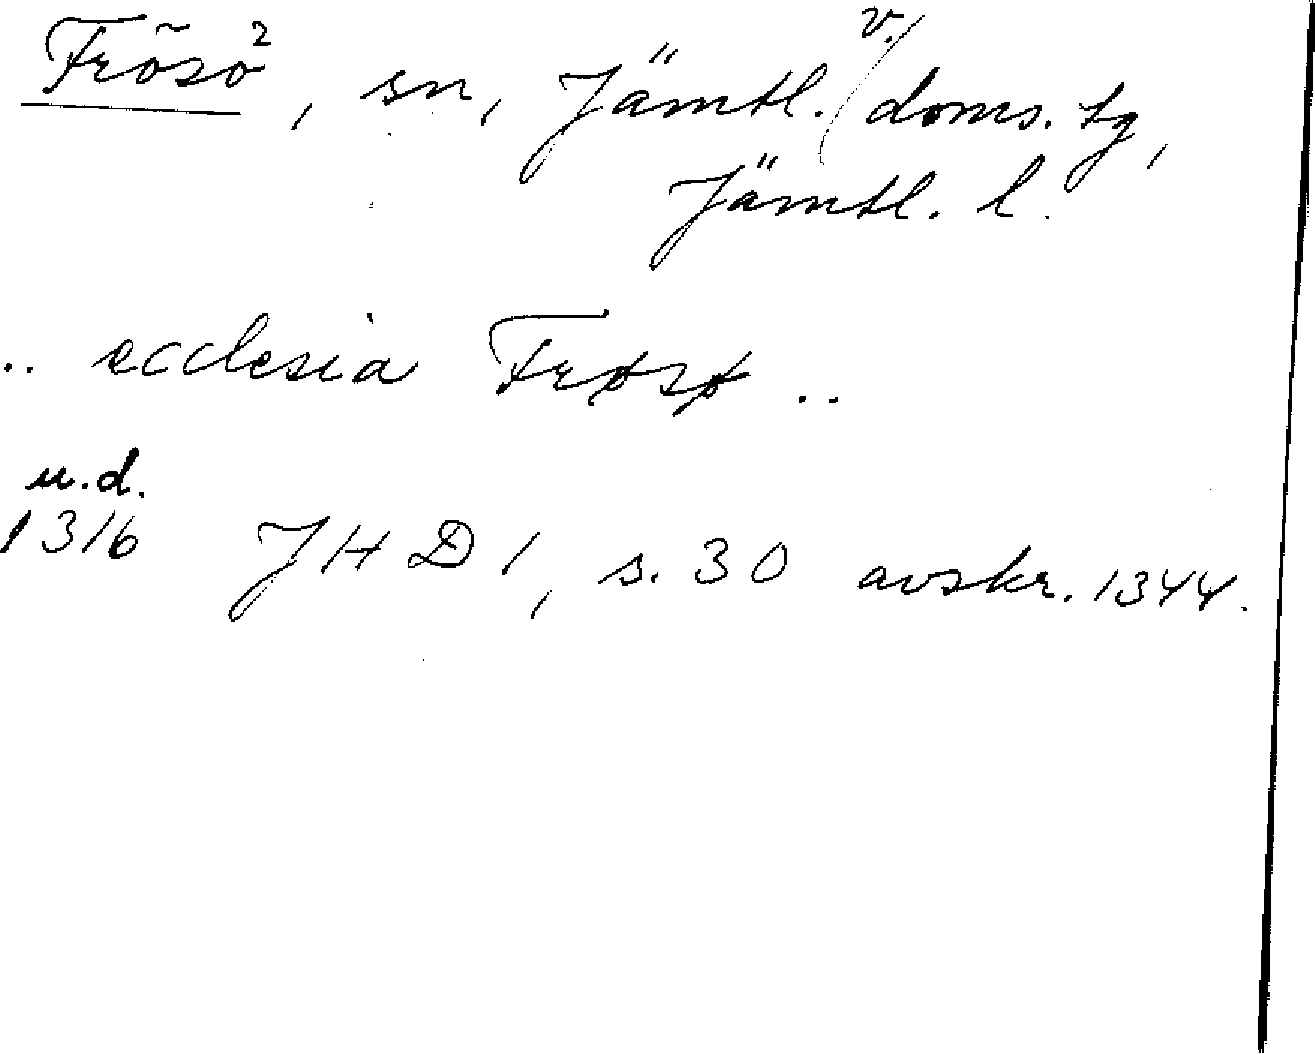 Frösö, sn, Jämtl. v. doms. tg,
Jämtl. l.
.. ecclesia Frøsø ..
u.d.
1316 JHD 1, s. 30 avskr. 1344.